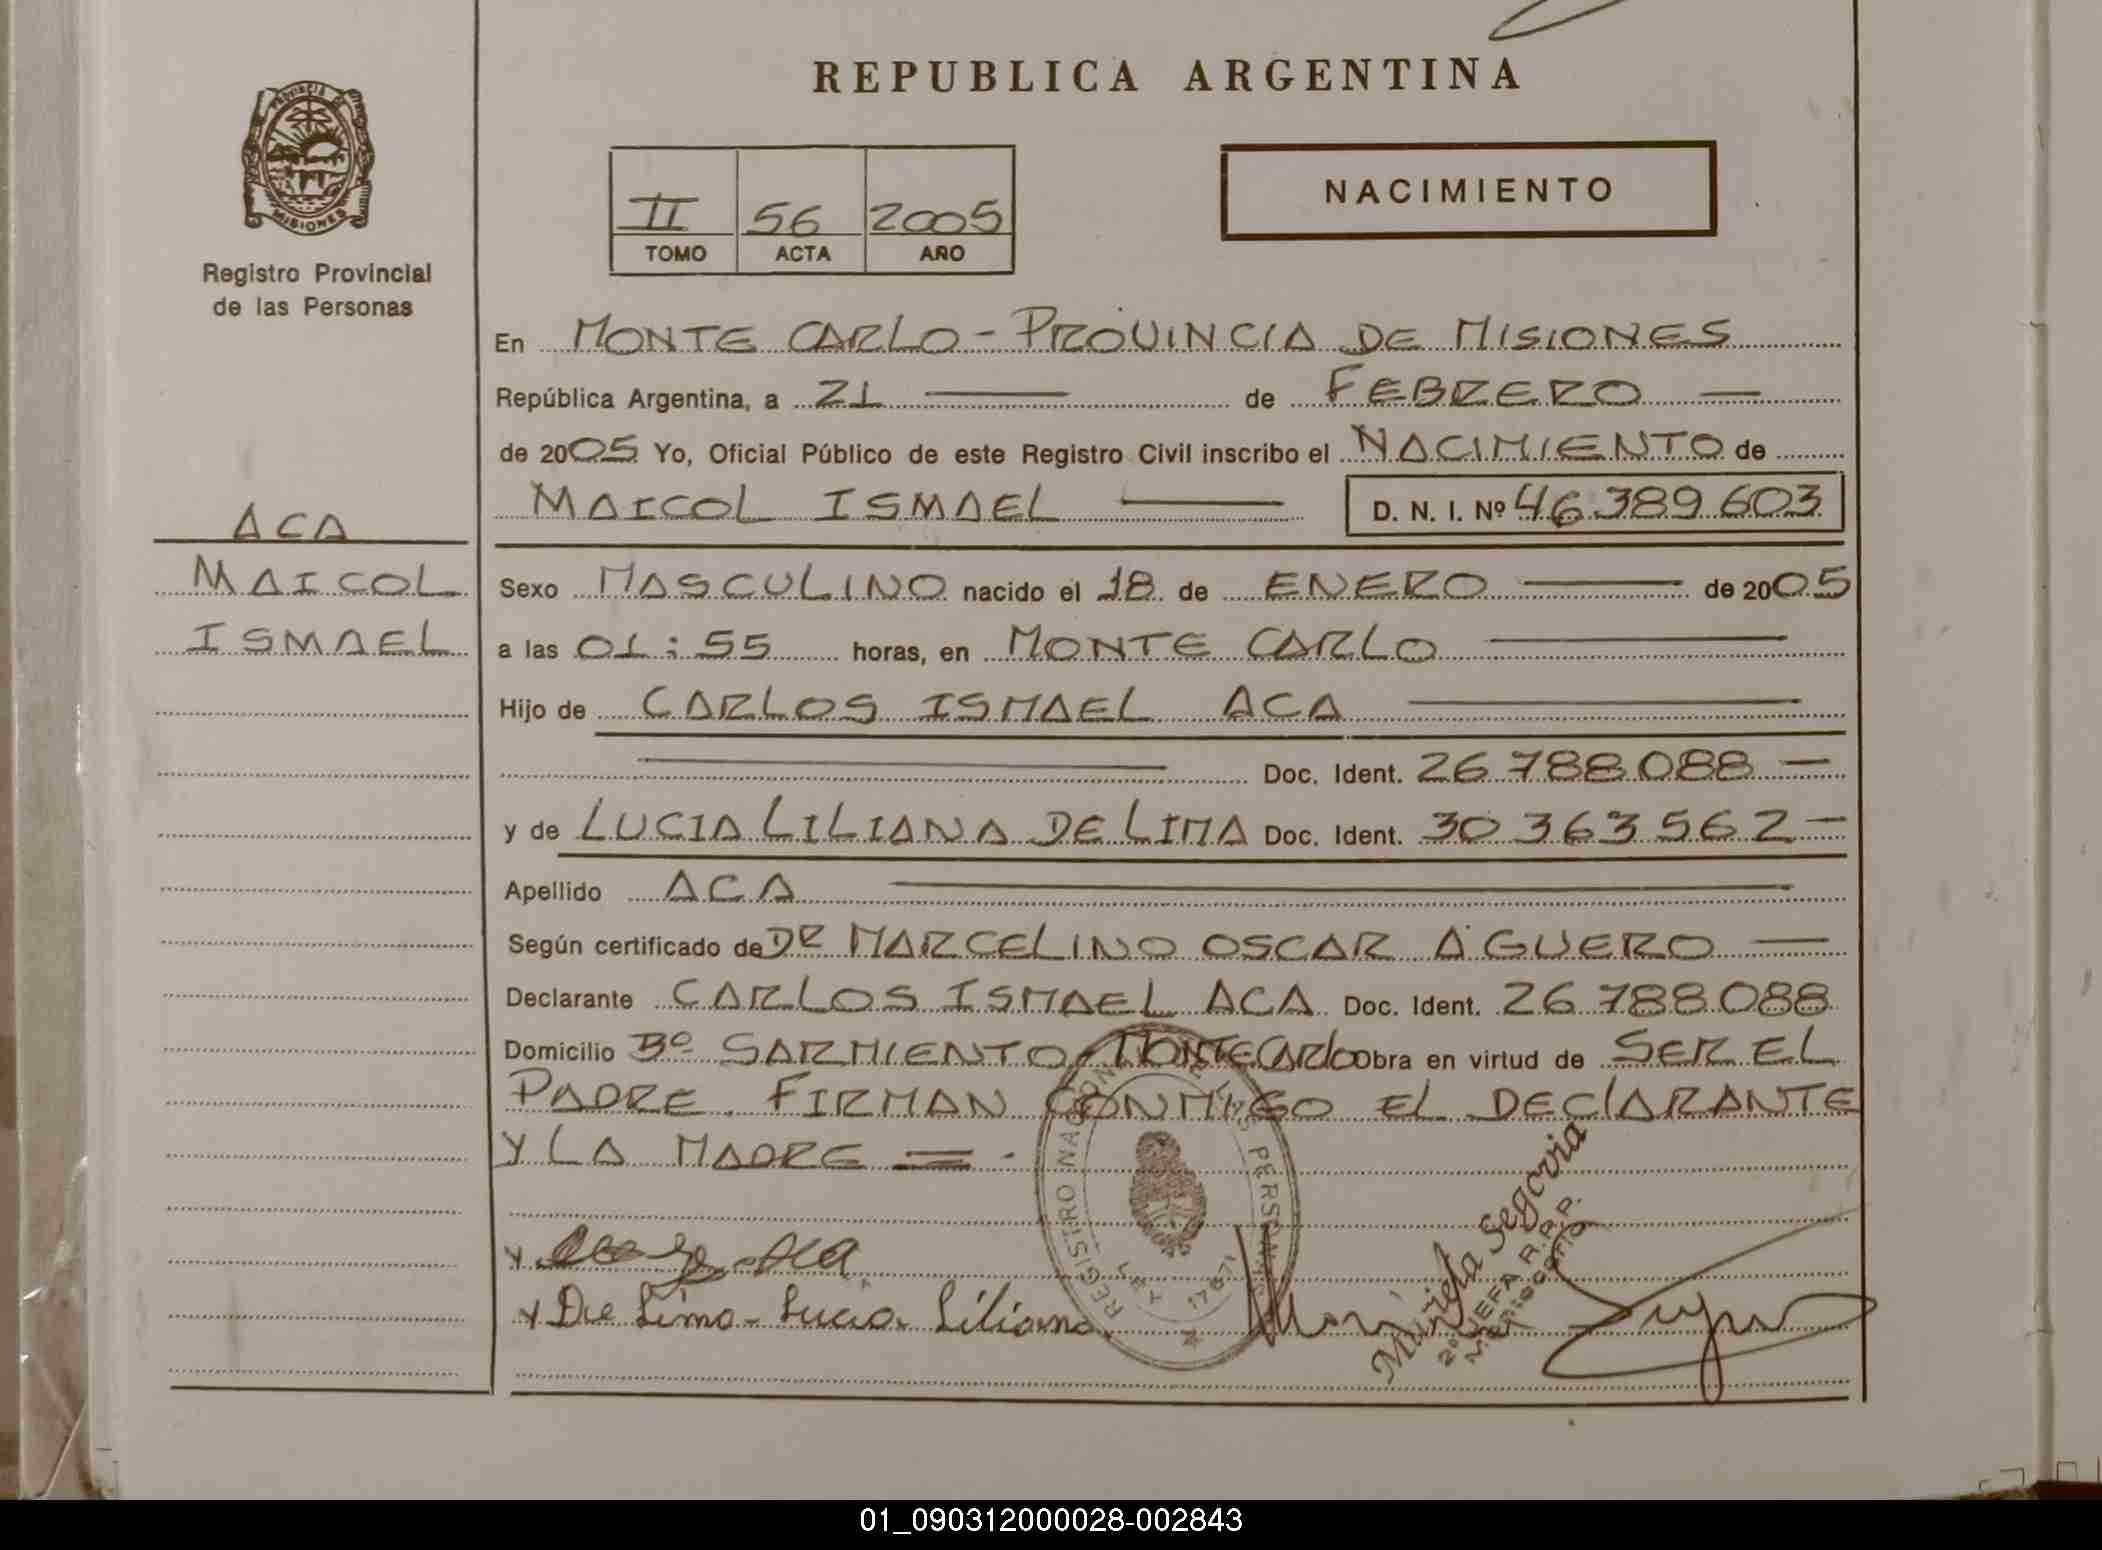 REPUBLICA ARGENTINA
PROVINCIA DE
MISIONES
Registro Provincial
de las Personas
NACIMIENTO
II 56 2005
TOMO ACTA AÑO
En MONTE CARLO - PROVINCIA DE MISIONES
República Argentina, a 21 de FEBRERO
de 2005 Yo, Oficial Público de este Registro Civil inscribo el NACIMIENTO de
MAICOL ISMAEL D. N. I. Nº 46.389.603
ACA
MAICOL
ISMAEL
Sexo MASCULINO nacido el 18 de ENERO de 2005
a las 01:55 horas, en MONTE CARLO
Hijo de CARLOS ISMAEL ACA
Doc. Ident. 26.788.088
y de LUCIA LILIANA DE LIMA Doc. Ident. 30.363.562
Apellido ACA
Según certificado de DR MARCELINO OSCAR AGUERO
Declarante CARLOS ISMAEL ACA Doc. Ident. 26.788.088
Domicilio Bº SARMIENTO MONTECARLO obra en virtud de SER EL
PADRE. FIRMAN CONMIGO EL DECLARANTE
Y LA MADRE
REGISTRO NACIONAL DE LAS PERSONAS
LEY 17671
Aca
x De Lima - Lucia Liliana
Muriela Segovia
2º JEFA R.P.P.
Montecarlo
01_090312000028-002843